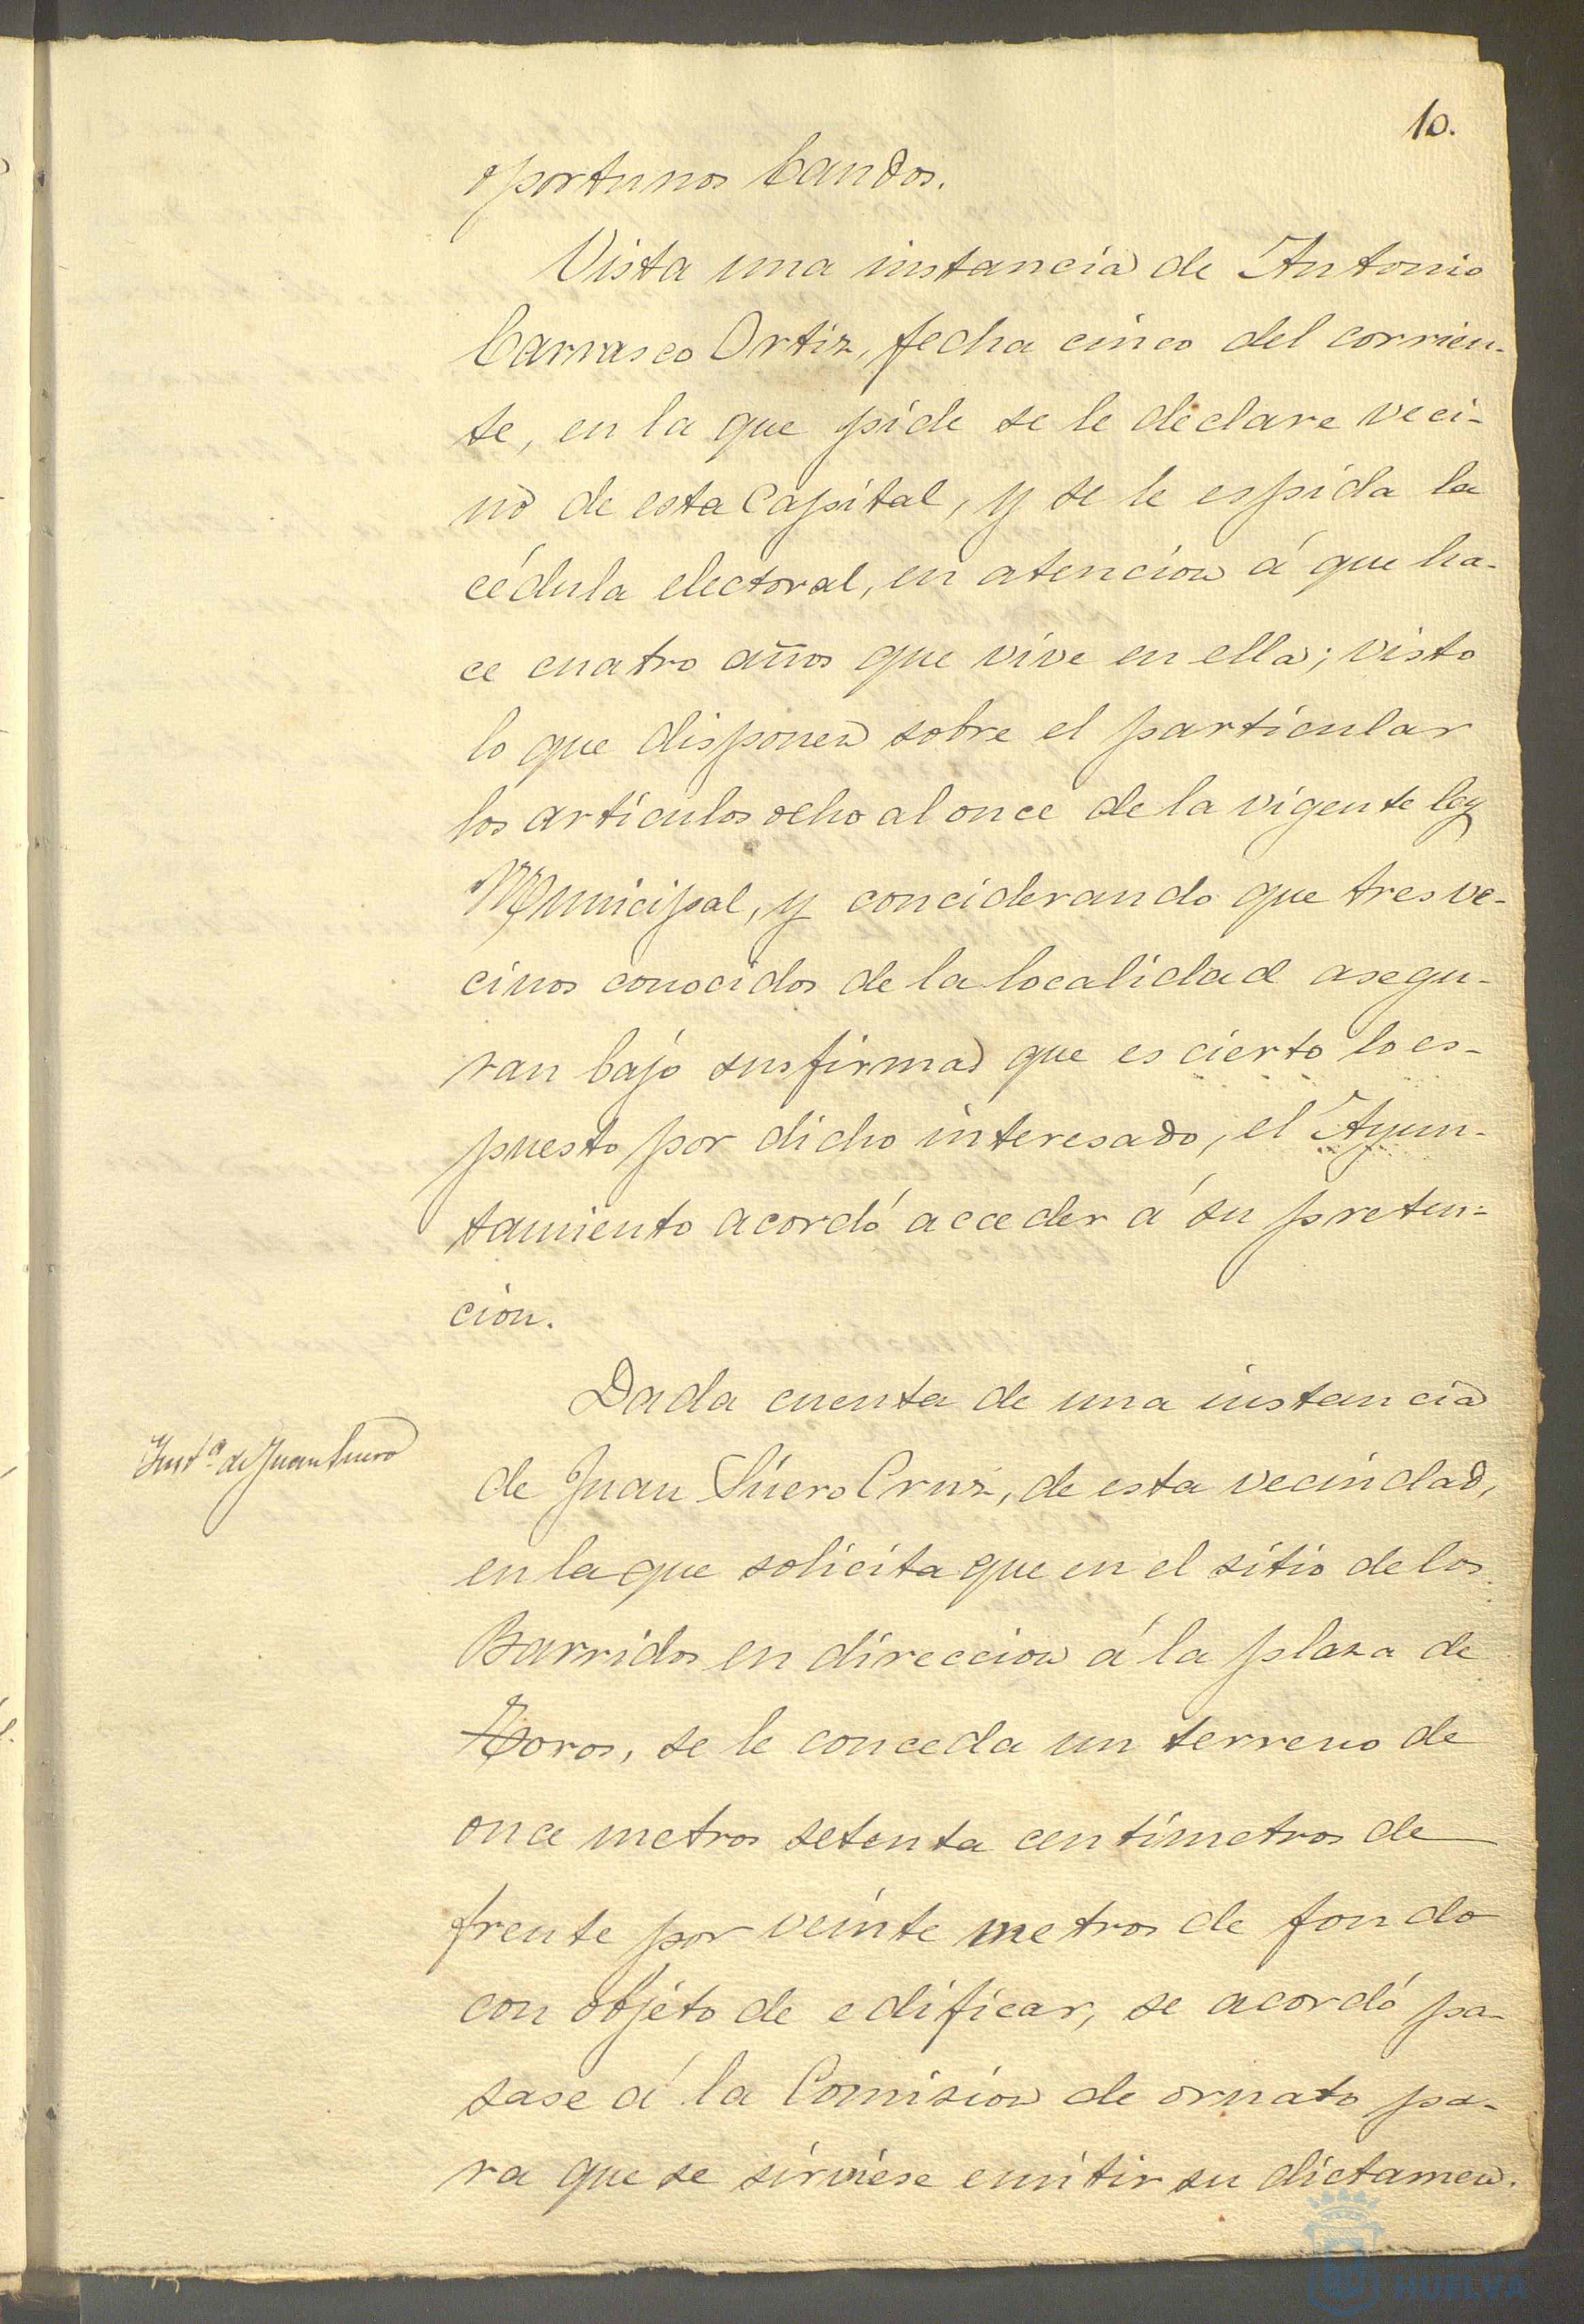 10.
oportunos bandos.
Vista una instancia de Antonio
Carrasco Ortiz, fecha cinco del corrien-
te, en la que pide se le declare veci-
no de esta Capital, y se le espida la
cédula electoral, en atencion á que ha-
ce cuatro años que vive en ella; visto
lo que disponen sobre el particular
los artículos ocho al once de la vigente ley
Municipal, y conciderando que tres ve-
cinos conocidos de la localidad asegu-
ran bajo sus firmas que es cierto lo es-
puesto por dicho interesado, el Ayun-
tamiento acordó acceder á su preten-
cion.
Dada cuenta de una instancia
Instª de Juan Suero
de Juan Súero Cruz, de esta vecindad,
en la que solicita que en el sitio de los
Barridos en direccion á la plaza de
Toros, se le conceda un terreno de
once metros setenta centímetros de
frente por veinte metros de fondo
con objeto de edificar, se acordó pa-
sase á la Comision de ornato pa-
ra que se sirviese emitir su dictamen.
HUELVA